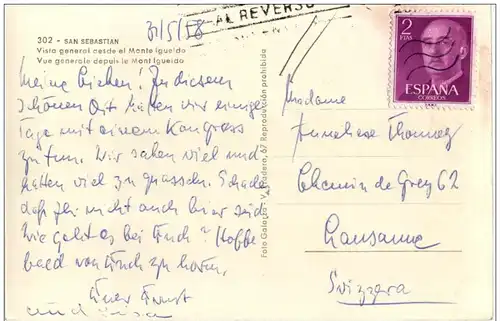 31/5/58
AL REVERSO
302 - SAN SEBASTIAN
Vista general desde el Monte Igueldo
Vue generale depuis le Mont Igueldo
Meine Lieben! In diesem
schönen Ort haben wir einige
Tage mit einem Kongress
zu tun. Wir sahen viel und
hatten viel zu quasseln. Schade
daß Ihr nicht auch hier seid.
Wie geht es bei Euch? Hoffe
bald von Euch zu hören.
Euer Ernst
und
Foto Galarza - V. Pradera, 67 Reproducción prohibida
2
PTAS
ESPAÑA
CORREOS
Madame
Anneliese
Chemin de Grey 62
Lausanne
Svizzera